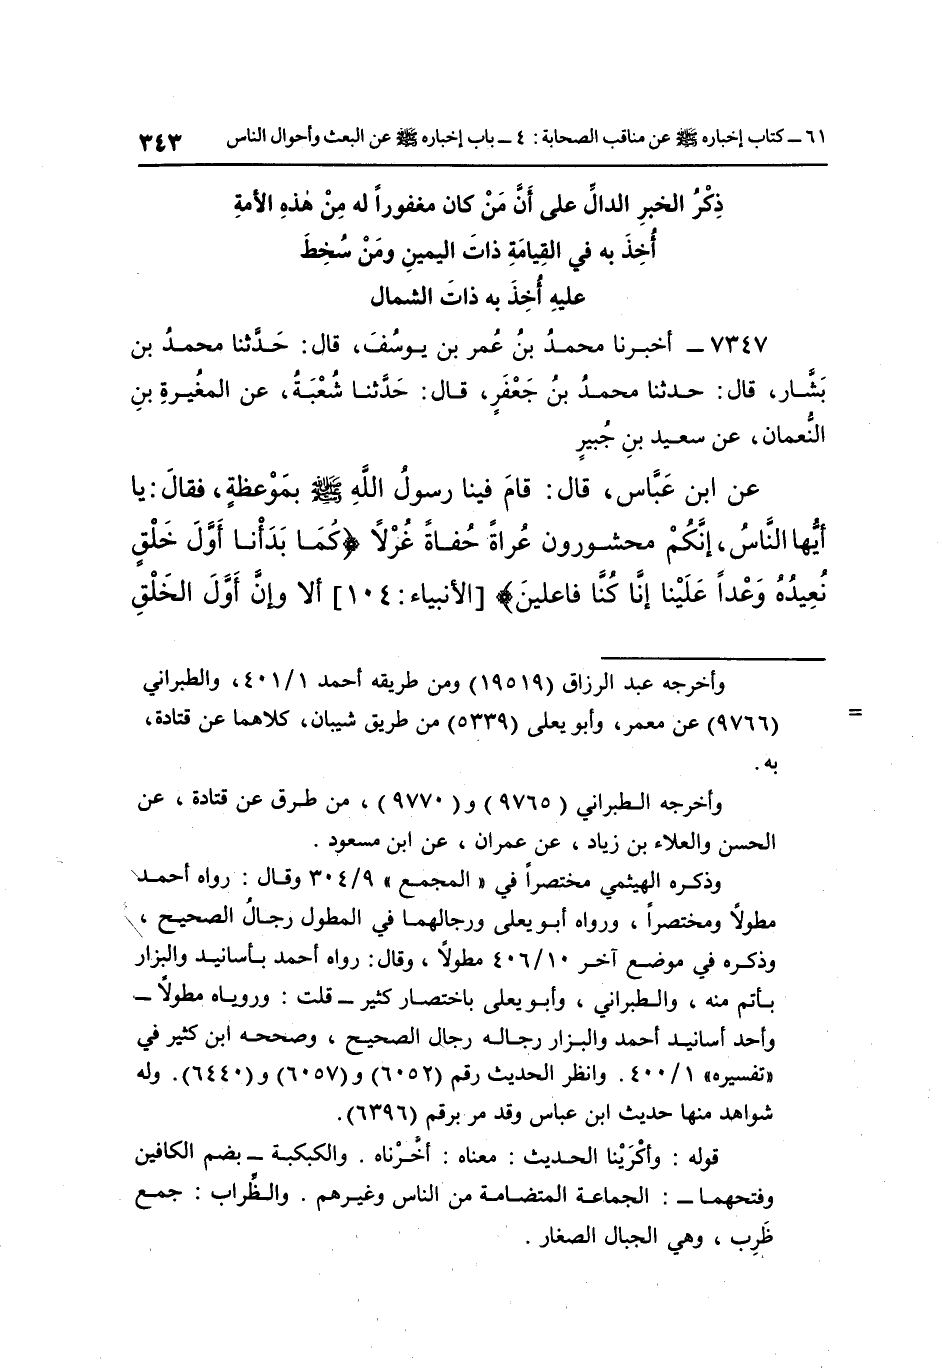 ٦١ ـ كتاب إخباره ﷺ عن مناقب الصحابة : ٤ ـ باب إخباره ﷺ عن البعث وأحوال الناس ٣٤٣
ذِكْرُ الخبرِ الدالِّ على أَنَّ مَنْ كان مغفوراً له مِنْ هٰذهِ الأمةِ
أُخِذَ به في القِيامَةِ ذاتَ اليمينِ ومَنْ سُخِطَ
عليهِ أُخِذَ به ذاتَ الشمال
٧٣٤٧ ـ أخبرنا محمدُ بنُ عُمر بن يوسُفَ، قال: حَدَّثنا محمدُ بن
بَشَّار، قال: حدثنا محمدُ بنُ جَعْفَرٍ، قال: حَدَّثنا شُعْبَةُ، عن المغُيرةِ بنِ
النُّعمان، عن سعيد بنِ جُبيرٍ
عن ابن عَبَّاس، قال: قامَ فينا رسولُ اللَّهِ ﷺ بمَوْعظةٍ، فقالَ: يا
أيُّها النَّاسُ، إنَّكُمْ محشورون عُراةً حُفاةً غُرْلًا ﴿كُمَا بَدَأْنا أَوَّلَ خَلْقٍ
نُعِيدُهُ وَعْداً عَلَيْنا إنَّا كُنَّا فاعلينَ﴾ [الأنبياء: ١٠٤] ألا وإنَّ أَوَّلَ الخَلْقِ
وأخرجه عبد الرزاق (١٩٥١٩) ومن طريقه أحمد ٤٠١/١، والطبراني
= (٩٧٦٦) عن معمر، وأبو يعلى (٥٣٣٩) من طريق شيبان، كلاهما عن قتادة،
به .
وأخرجه الطبراني ( ٩٧٦٥ ) و( ٩٧٧٠ ) ، من طرق عن قتادة ، عن
الحسن والعلاء بن زياد ، عن عمران ، عن ابن مسعود .
وذكره الهيثمي مختصراً في « المجمع » ٣٠٤/٩ وقال : رواه أحمد
مطولًا ومختصراً ، ورواه أبو يعلى ورجالهما في المطول رجالُ الصحيح ،
وذكره في موضع آخر ٤٠٦/١٠ مطولًا ، وقال: رواه أحمد بأسانيد والبزار
بأتم منه ، والطبراني ، وأبو يعلى باختصار كثير ـ قلت : وروياه مطولًا ـ
وأحد أسانيد أحمد والبزار رجاله رجال الصحيح ، وصححه ابن كثير في
«تفسيره» ٤٠٠/١ . وانظر الحديث رقم (٦٠٥٢) و(٦٠٥٧) و(٦٤٤٠). وله
شواهد منها حديث ابن عباس وقد مر برقم (٦٣٩٦).
قوله : وأكْرَيْنا الحديث : معناه : أخَّرْناه . والكبكبة ـ بضم الكافين
وفتحهما ـ : الجماعة المتضامة من الناس وغيرهم . والظِّراب : جمع
ظَرِب ، وهي الجبال الصغار .